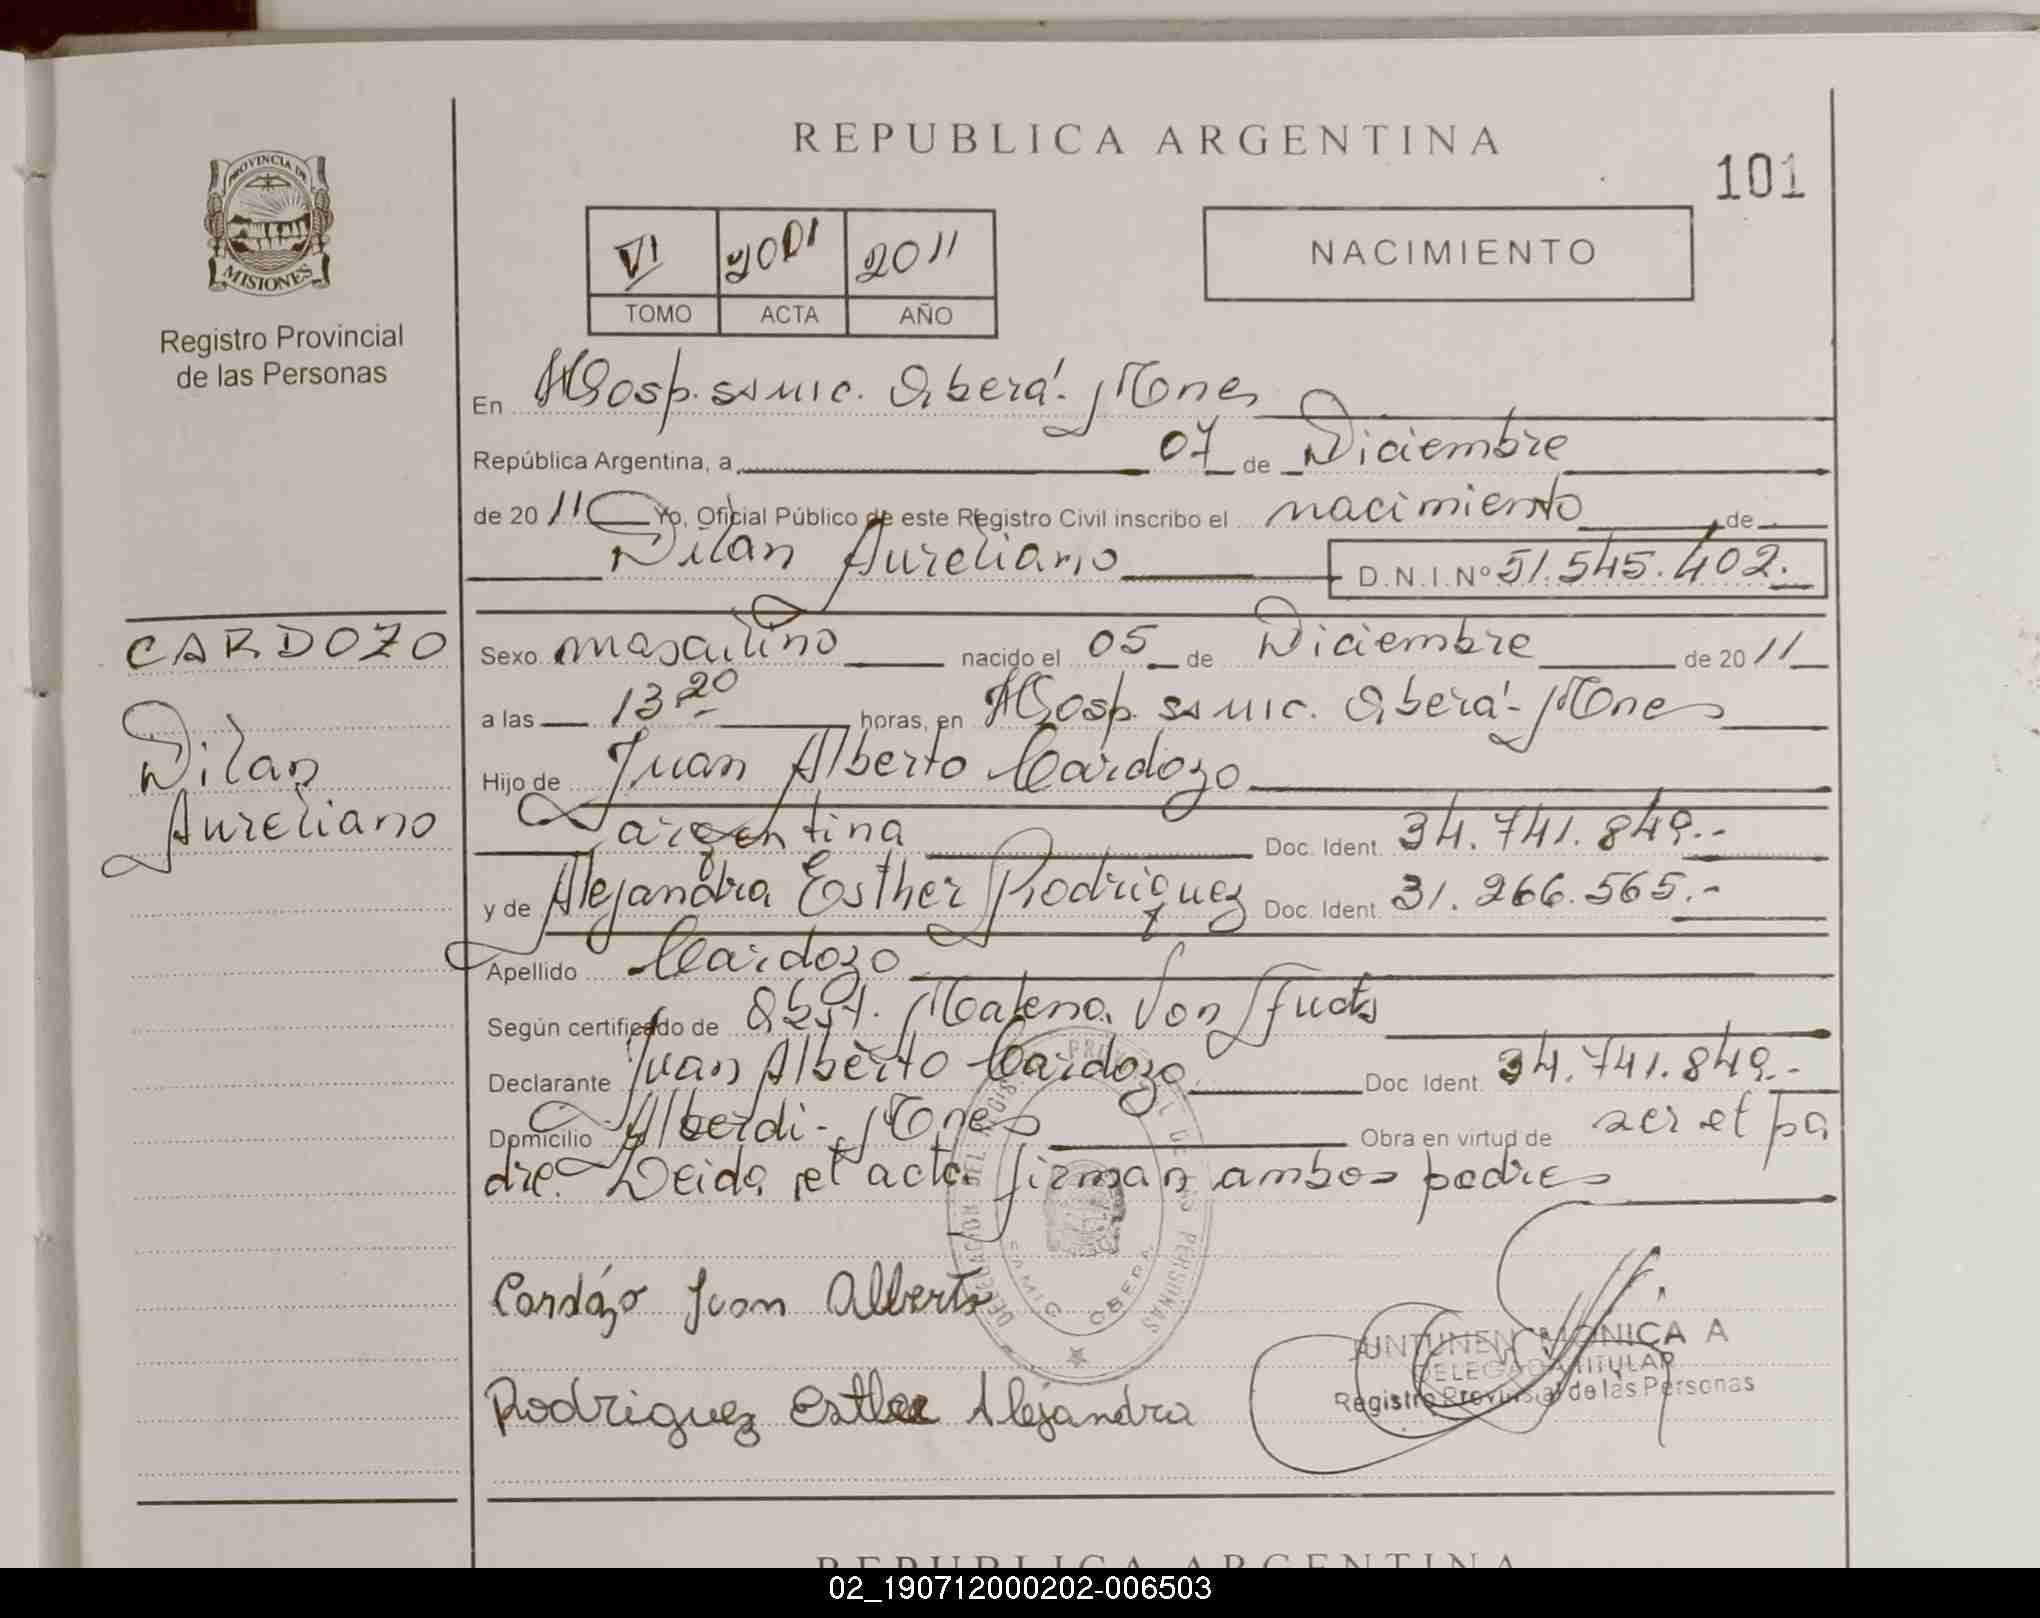 REPUBLICA ARGENTINA
101
PROVINCIA DE
MISIONES
Registro Provincial
de las Personas
VI 2001 2011
TOMO ACTA AÑO
NACIMIENTO
En Hosp. ssmic. Oberá. Mnes
República Argentina, a 07 de Diciembre
de 2011 Yo, Oficial Público de este Registro Civil inscribo el nacimiento de
Dilan Aureliano D.N.I. Nº 51.545.402.
CARDOZO
Dilan
Aureliano
Sexo masculino nacido el 05 de Diciembre de 2011
a las 13 20 horas, en Hosp. ssmic. Oberá - Mnes
Hijo de Juan Alberto Cardozo
argentina Doc. Ident. 34.741.849.-
y de Alejandra Esther Rodriguez Doc. Ident. 31.266.565.-
Apellido Cardozo
Según certificado de Obst. Malena Von
Declarante Juan Alberto Cardozo Doc Ident. 34.741.849.-
Domicilio Alberdi - Mnes Obra en virtud de ser el pa
dre. Leida el acta firman ambos padres
Cardozo Juan Alberto
Rodriguez Esther Alejandra
JUNTUNEN MONICA A
DELEGADA TITULAR
Registro Provincial de las Personas
REPUBLICA ARGENTINA
02_190712000202-006503